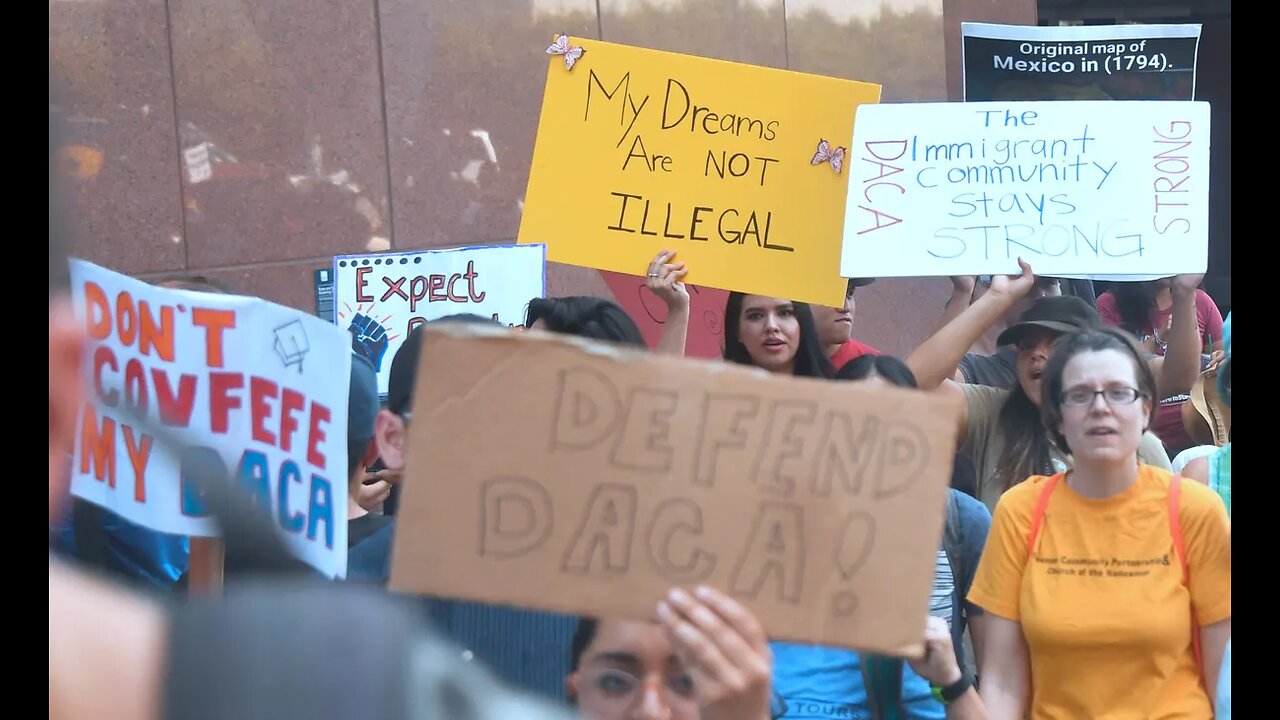 Original map of
Mexico in (1794).
My DREAMS
ARE NOT
ILLEGAL
DACA
The
Immigrant
community
stays
STRONG
STRONG
Expect
DON'T
COVFEFE
MY DACA
DEFEND
DACA!
Community Partnership &
Church of the
TOURS